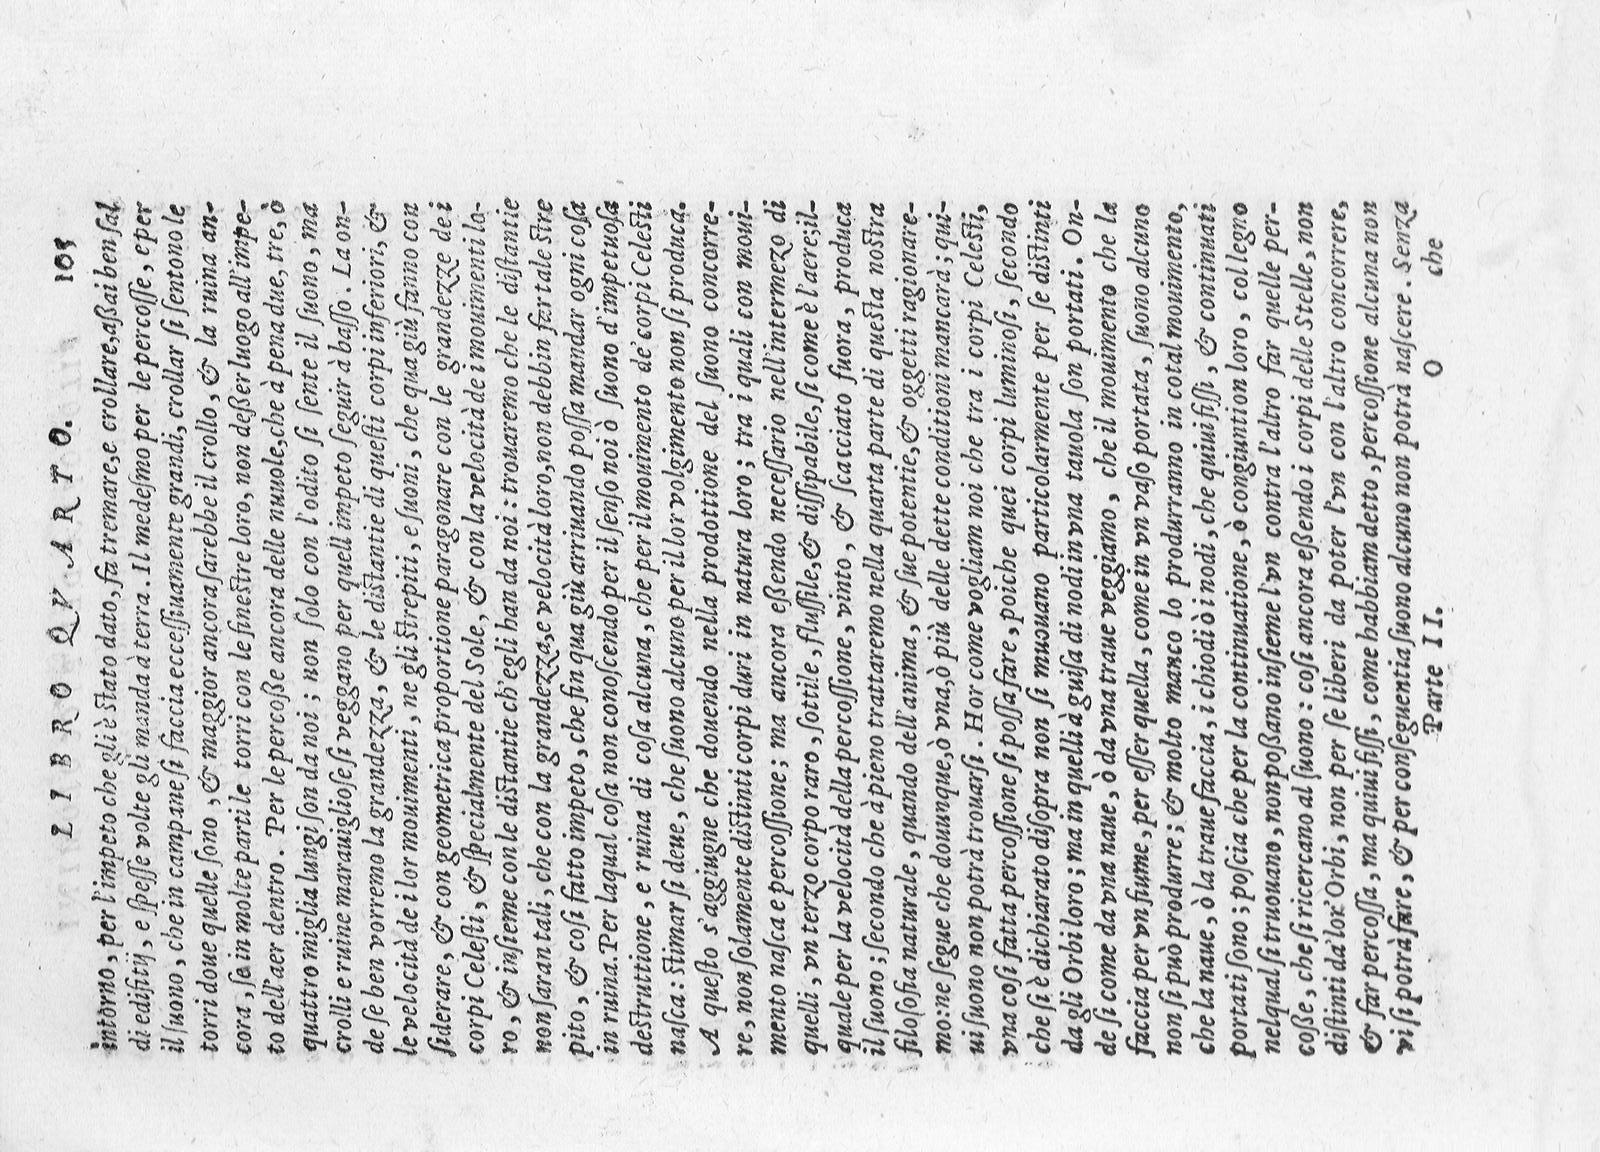 LIBRO QVARTO. 105
intorno, per l'impeto che gli è stato dato, fa tremare, e crollare, aßai ben sal
di edifitij, e speſſe volte gli manda à terra. Il medeſmo per le percoſſe, e per
il ſuono, che in campane ſi faccia ecceſſiuamente grandi, crollar ſi ſentono le
torri doue quelle ſono, & maggior ancora ſarebbe il crollo, & la ruina an-
cora, ſe in molte parti le torri con le fineſtre loro, non deßer luogo all'impe-
to dell'aer dentro. Per le percoße ancora delle nuuole, che à pena due, tre, ò
quattro miglia lungi ſon da noi; non ſolo con l'odito ſi ſente il ſuono, ma
crolli e ruine marauiglioſe ſi veggano per quell'impeto ſeguir à baſſo. La on-
de ſe ben vorremo la grandezza, & le diſtantie di queſti corpi inferiori, &
le velocità de i lor mouimenti, ne gli ſtrepiti, e ſuoni, che qua giù fanno con
ſiderare, & con geometrica proportione paragonare con le grandezze de i
corpi Celeſti, & ſpecialmente del Sole, & con la velocità de i mouimenti lo-
ro, & inſieme con le diſtantie ch'egli han da noi: trouaremo che le diſtantie
non ſaran tali, che con la grandezza, e velocità loro, non debbin far tale ſtre
pito, & coſi fatto impeto, che fin qua giù arriuando poſſa mandar ogni coſa
in ruina. Per laqual coſa non conoſcendo per il ſenſo noi ò ſuono d'impetuoſa
deſtruttione, e ruina di coſa alcuna, che per il mouimento de' corpi Celeſti
naſca: ſtimar ſi deue, che ſuono alcuno per il lor volgimento non ſi produca.
A queſto s'aggiugne che douendo nella prodottione del ſuono concorre-
re, non ſolamente diſtinti corpi duri in natura loro; tra i quali con moui-
mento naſca e percoſſione; ma ancora eßendo neceſſario nell'intermezo di
quelli, vn terzo corpo raro, ſottile, fluſſile, & diſſipabile, ſi come è l'aere; il-
quale per la velocità della percoſſione, vinto, & ſcacciato fuora, produca
il ſuono; ſecondo che à pieno trattaremo nella quarta parte di queſta noſtra
filoſofia naturale, quando dell'anima, & ſue potentie, & oggetti ragionare-
mo: ne ſegue che dounque, ò vna, ò più delle dette conditioni mancarà; qui-
ui ſuono non potrà trouarſi. Hor come vogliam noi che tra i corpi Celeſti,
vna coſi fatta percoſſione ſi poſſa fare, poiche quei corpi luminoſi, ſecondo
che ſi è dichiarato diſopra non ſi muouano particolarmente per ſe diſtinti
da gli Orbi loro; ma in quelli à guiſa di nodi in vna tauola ſon portati. On-
de ſi come da vna naue, ò da vna traue veggiamo, che il mouimento che la
faccia per vn fiume, per eſſer quella, come in vn vaſo portata, ſuono alcuno
non ſi può produrre; & molto manco lo produrranno in cotal mouimento,
che la naue, ò la traue faccia, i chiodi ò i nodi, che quiui fiſſi, & continuati
portati ſono; poſcia che per la continuatione, ò congiuntion loro, col legno
nelqual ſi truouano, non poßano inſieme l'vn contra l'altro far quelle per-
coße, che ſi ricercano al ſuono: coſi ancora eßendo i corpi delle Stelle, non
diſtinti da' lor' Orbi, non per ſe liberi da poter l'vn con l'altro concorrere,
& far percoſſa, ma quiui fiſſi, come habbiam detto, percoſſione alcuna non
vi ſi potrà fare, & per conſeguentia ſuono alcuno non potrà naſcere. Senza
Parte II. O che